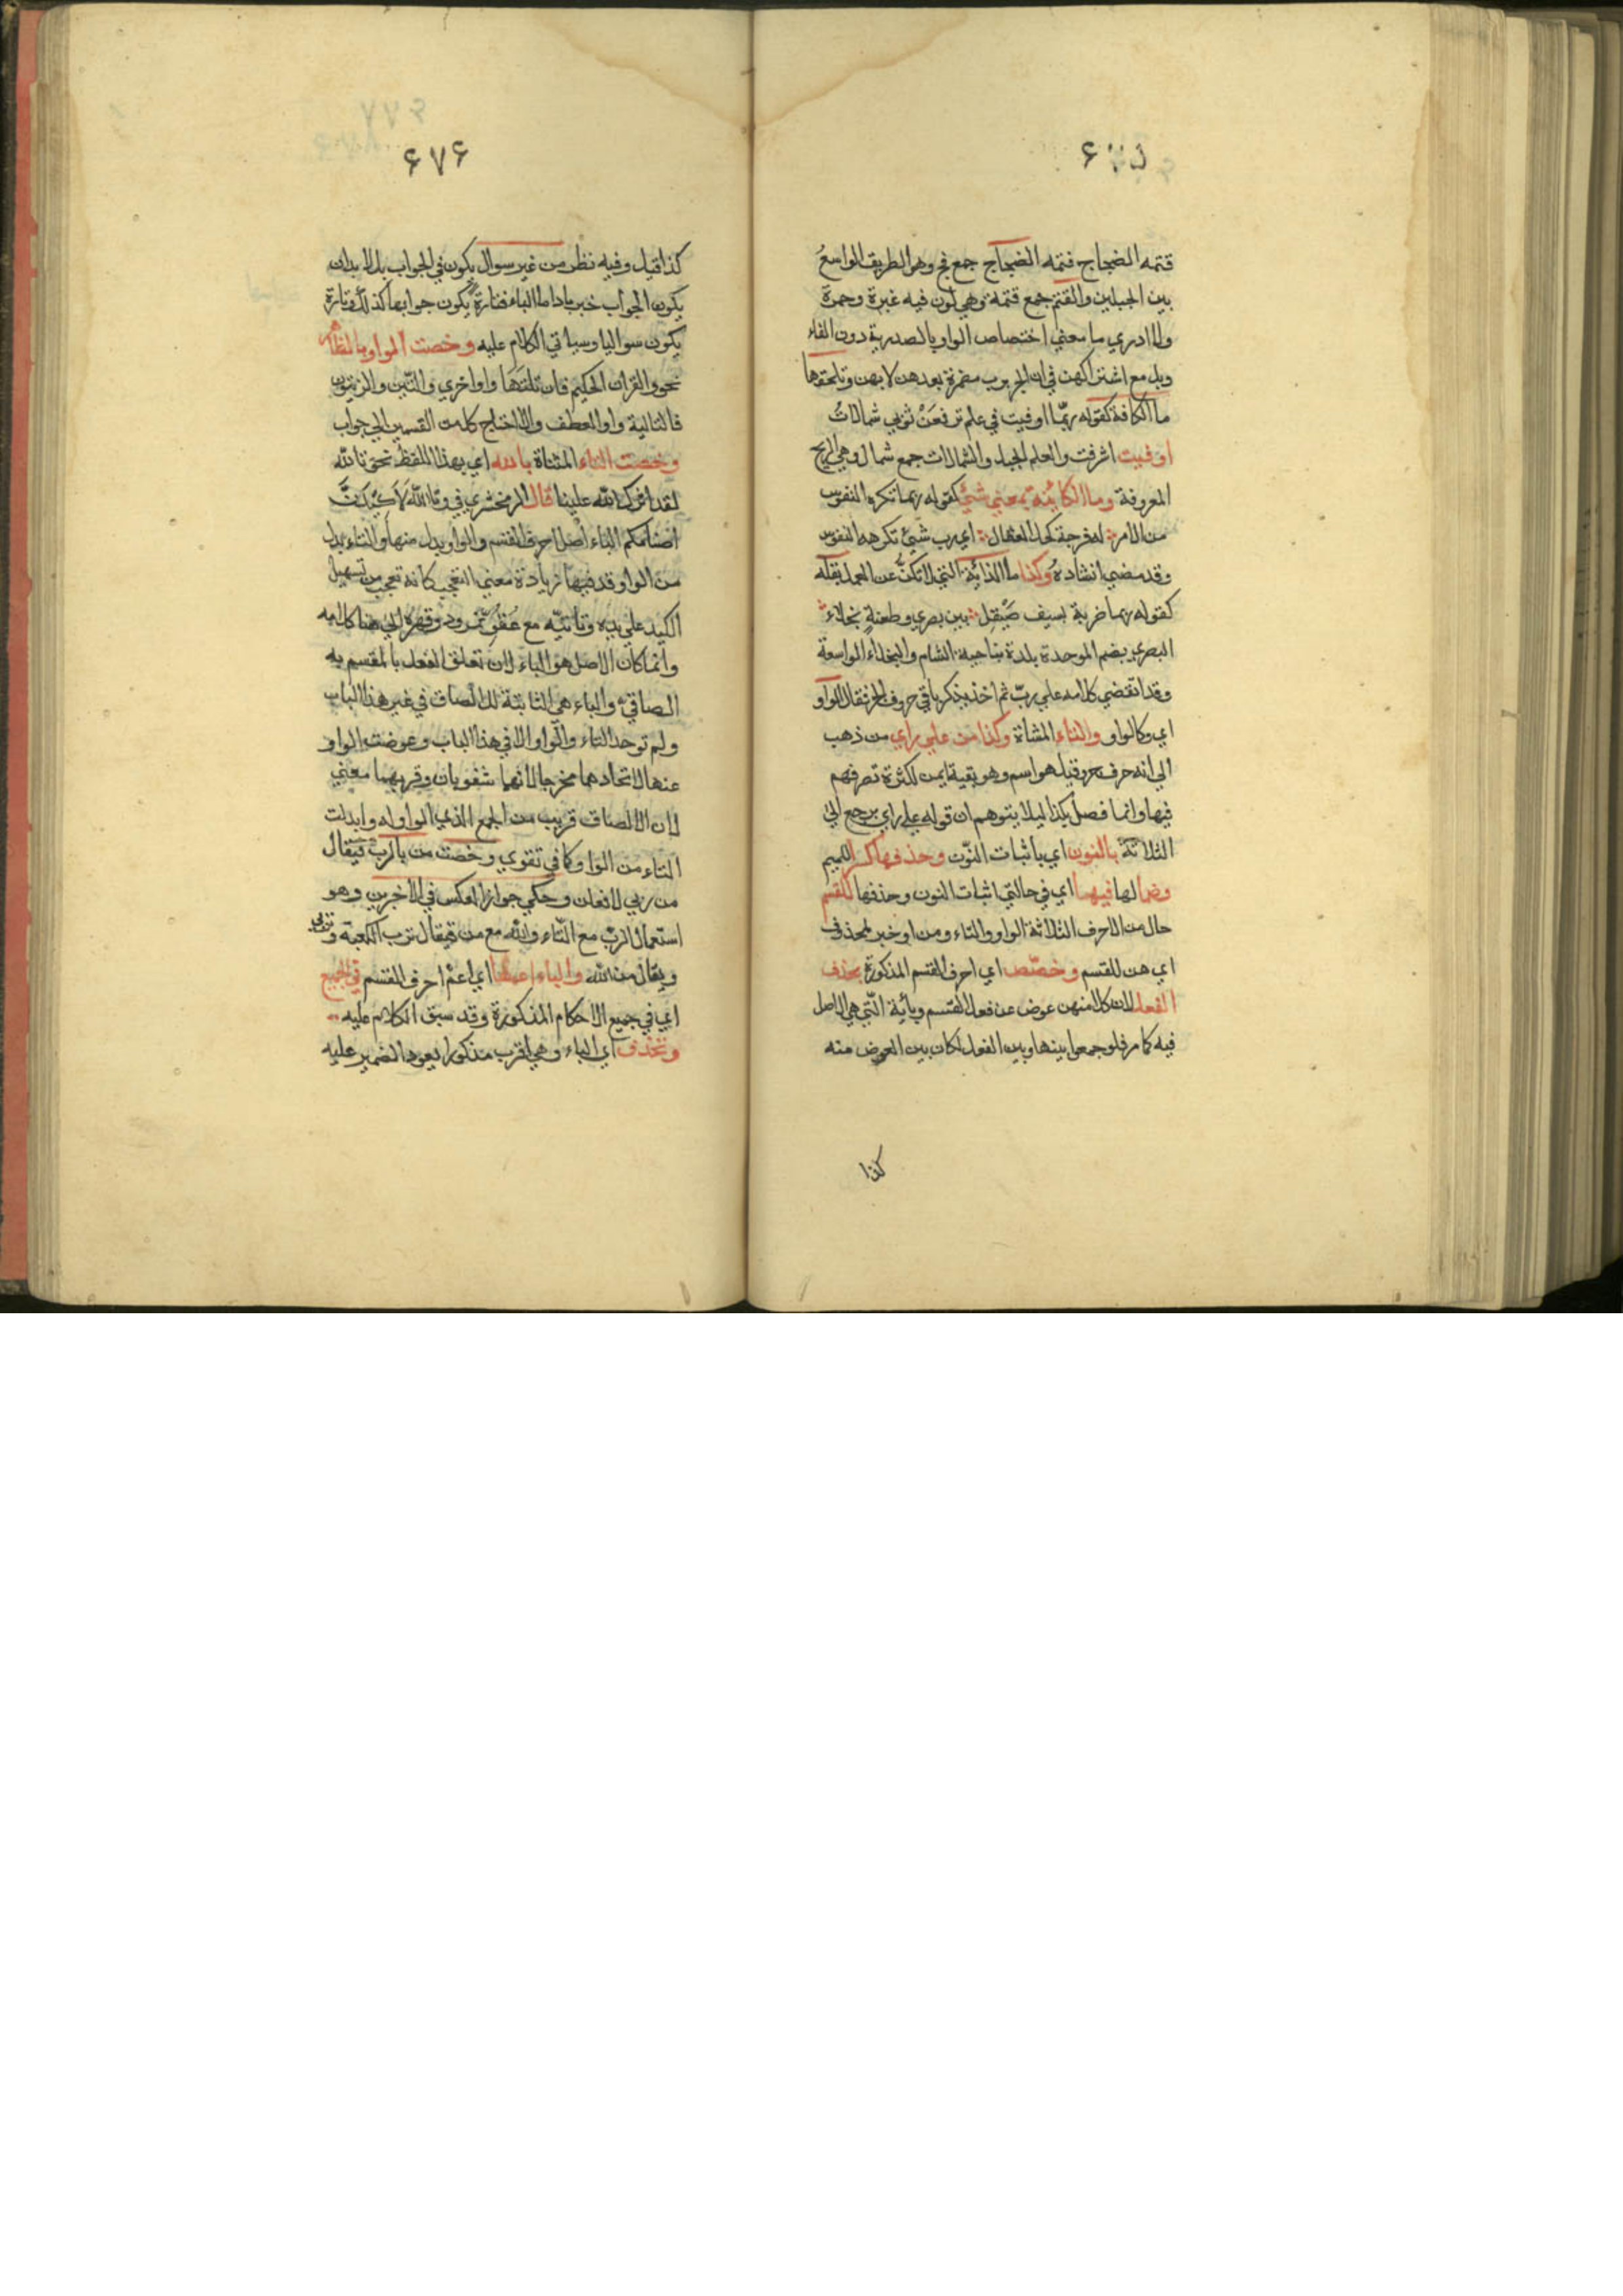 قتمه الضجاج فتمه الضجاج جمع فج وهو الطريق الواسع
بين الجبلين والقتم جمع قتمة وهي لون فيه غبرة وحمرة
ولا ادري ما معني اختصاص الواو بالصدرية دون الفاء
وبل مع اشتراكهن في ان الجر برب مضمرة بعدهن لا بهن وتلحقها
ما الكافة كقوله ربما اوفيت في علم ترفعن ثوبي شمالات
اوفيت اشرفت والعلم الجبل والشمالات جمع شمال وهي الريح
المعروفة وما الكائنة بمعني شيء كقوله ربما تكره النفوس
من الامر له فرجة كحل العقال اي رب شيء تكرهه النفوس
وقد مضي انشاده وكذا ما الذائية التي لا تكف عن العمل بقلة
كقوله ربما ضربة بسيف صيقل بين بصري وطعنة نجلاء
البصري بضم الموحدة بلدة بناحية الشام والنجلاء الواسعة
وقد انقضي كلامه علي رب ثم اخذ يذكر باقي حروف الجر فقال الواو
اي وكالواو والتاء المثناة وكذا من علي راي من ذهب
الي انه حرف جر وقيل هو اسم وهو بقية ايمن لكثرة تصرفهم
فيها وانما فصل بكذا ليلا يتوهم ان قوله علي راي يرجع الي
الثلاثة بالنون اي باثبات النون وحذفها كسر الميم
وضما لها فيهما اي في حالتي اثبات النون وحذفها للقسم
حال من الاحرف الثلاثة الواو والتاء ومن او خبر لمحذوف
اي هن للقسم وخصص اي احرف القسم المذكورة بحذف
الفعل لان كلا منهن عوض عن فعل القسم وبائية التي هي الاصل
فيه كما مر فلو جمعوا بينها وبين الفعل لكان بين العوض منه
كذا
۶۷۶
كذا قيل وفيه نظر من غير سوال يكون في الجواب بل لا بد ان
يكون الجواب خبريا داما الباء فتارة يكون جوابها كذلك وتارة
يكون سواليا وسياتي الكلام عليه وخصت الواو بالمظاهر
نحو والقران الحكيم فان تلتها واو اخري والتين والزيتون
فالتالية واو العطف والا احتاج كل من القسمين الي جواب
وخصت التاء المثناة بالله اي بهذا اللفظ نحو تالله
لقد اثرك الله علينا قال الزمخشري في وتالله لاكيدن
اصنامكم الباء اصل احرف القسم والواو بدل منها والتاء بدل
من الواو وقد فيها زيادة معني التعجب كانه تعجب من تسهيل
الكيد علي يديه وتاتيه مع عتو نمرود وقهره الي هنا كلامه
وانما كان الاصل هو الباء لان تعلق الفعل بالمقسم به
الصاقي والباء هي الثابتة للالصاق في غير هذا الباب
ولم توجد التاء والواو الا في هذا الباب وعوضت الواو
عنها لاتحادهما مخرجا لانهما شفويان وقربهما معني
لان الالصاق قريب من الجمع الذي الواو له وابدلت
التاء من الواو كما في تقوي وخصت من بالرب فيقال
من ربي لافعلن وحكي جواز العكس في الاخرين وهو
استعمال الرب مع التاء والله مع من فيقال ترب الكعبة وتربي
ويقال من الله والباء اعمها اي اعم احرف القسم في الجميع
اي في جميع الاحكام المذكورة وقد سبق الكلام عليه
وتحذف اي الباء وهي اقرب مذكورا يعود الضمير عليه